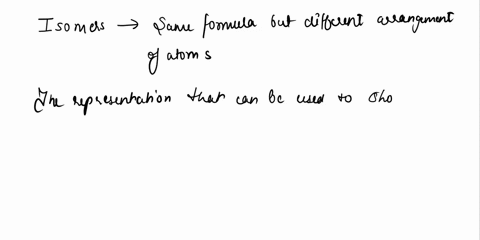 Isomers → Same formula but different arrangement
of atoms
The representation that can be used to sho